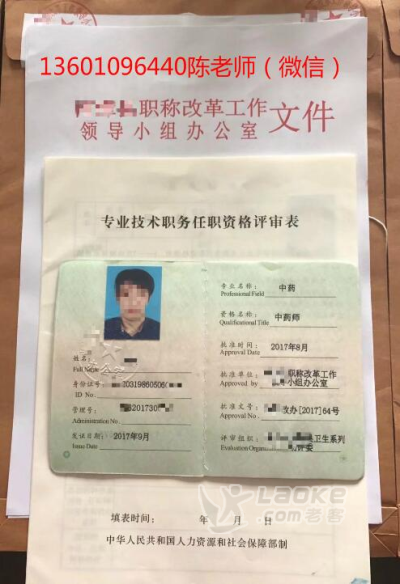 13601096440陈老师（微信）
职称改革工作
领导小组办公室
文件
专业技术职务任职资格评审表
姓名:
Full Name
身份证号:
20319860506
ID No.
管理号:
8201730
Administration No.
发证日期: 2017年9月
Issue Date
专业名称: 中药
Professional Field
资格名称: 中药师
Qualificational Title
批准时间: 2017年8月
Approval Date
批准单位: 职称改革工作
Approved by 小组办公室
批准文号: 改办[2017]64号
Approval No.
评审组织: 卫生系列
Evaluation Organ
Laoke
.com老客
填表时间: 年 月 日
中华人民共和国人力资源和社会保障部制